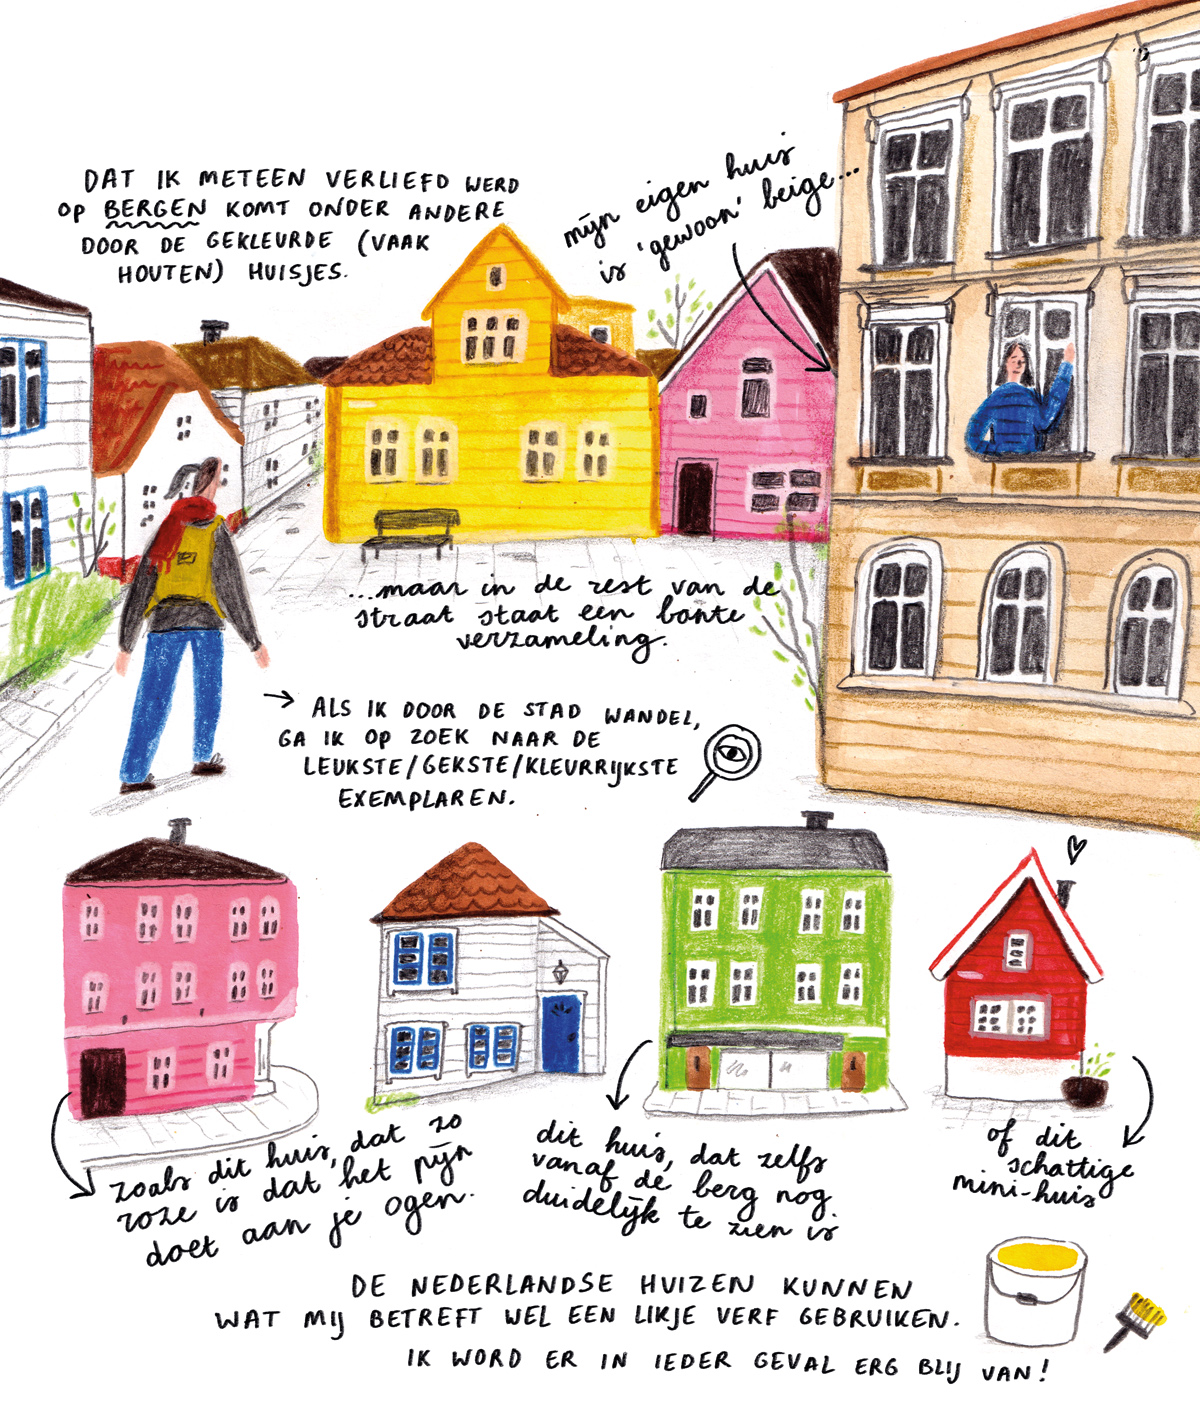 DAT IK METEEN VERLIEFD WERD
OP BERGEN KOMT ONDER ANDERE
DOOR DE GEKLEURDE (VAAK
HOUTEN) HUISJES.
mijn eigen huis
is 'gewoon' beige...
...maar in de rest van de
straat staat een bonte
verzameling.
→ ALS IK DOOR DE STAD WANDEL,
GA IK OP ZOEK NAAR DE
LEUKSTE/GEKSTE/KLEURRIJKSTE
EXEMPLAREN.
zoals dit huis, dat zo
roze is dat het pijn
doet aan je ogen.
dit huis, dat zelfs
vanaf de berg nog
duidelijk te zien is
of dit
schattige
mini-huis
DE NEDERLANDSE HUIZEN KUNNEN
WAT MIJ BETREFT WEL EEN LIKJE VERF GEBRUIKEN.
IK WORD ER IN IEDER GEVAL ERG BLIJ VAN!